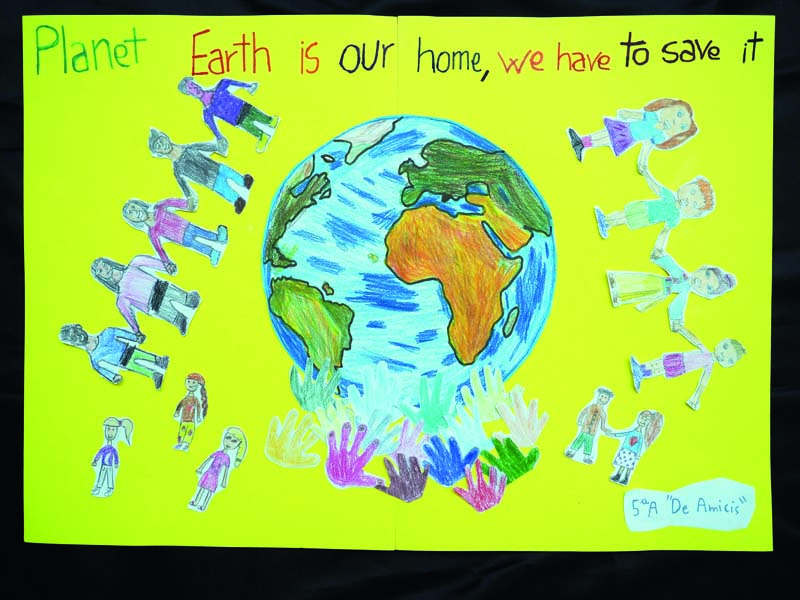 Planet Earth is our home, we have to save it
5ªA "De Amicis"